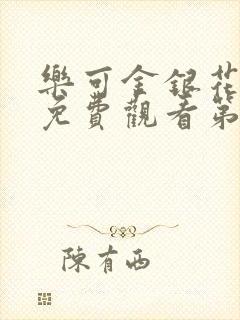 樂可金銀花
免費觀看第
陳有西